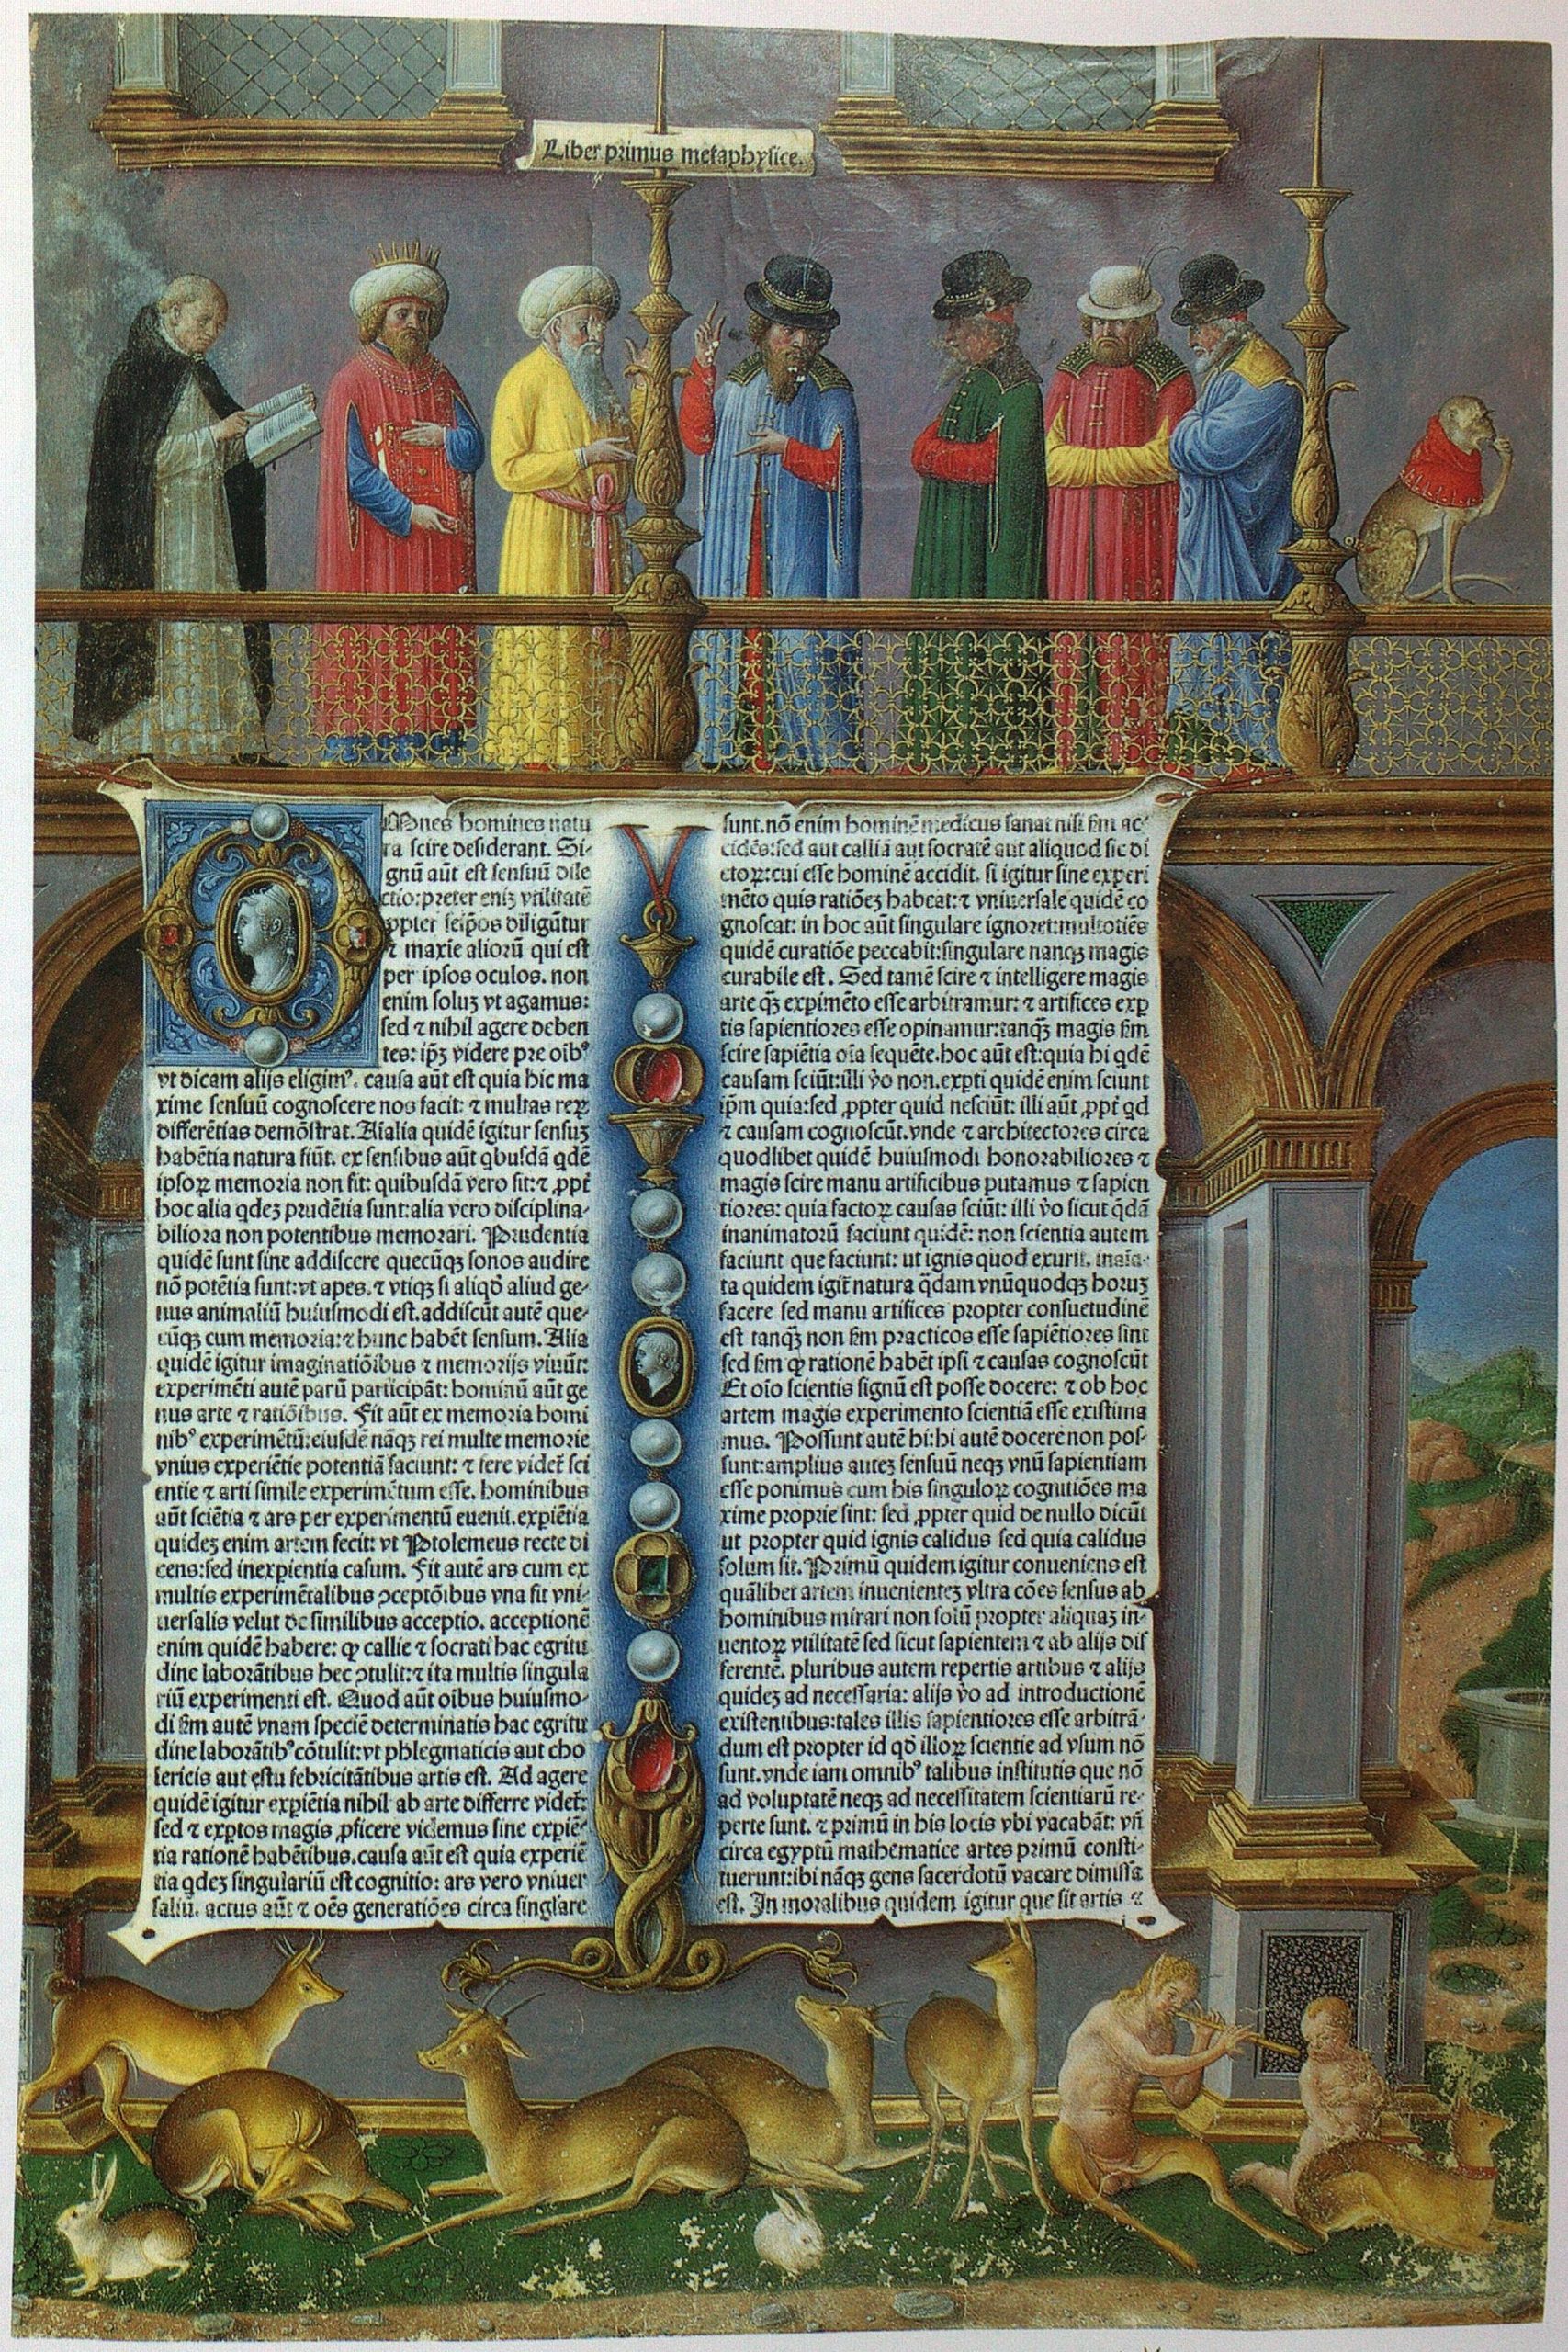 Liber primus metaphysice.
OMnes homines natu
ra scire desiderant. Si-
gnū aūt est sensuū dile
ctio: preter eniȝ vtilitatē
ꝓpter seip̄os diligūtur
⁊ maxīe aliorū qui est
per ipsos oculos. non
enim soluȝ vt agamus:
sed ⁊ nihil agere deben
tes: ip̄ȝ videre pre oībꝰ
vt dicam alijs eligimꝰ. causa aūt est quia hic ma
xime sensuū cognoscere nos facit: ⁊ multas reꝝ
differētias demōstrat. Aīalia quidē igitur sensuȝ
habētia natura fiūt. ex sensibus aūt qbusdā qdē
ipsoꝝ memoria non fit: quibusdā vero fit: ⁊ ꝓpt̄
hoc alia qdeȝ prudētia sunt: alia vero disciplina-
biliora non potentibus memorari. Prudentia
quidē sunt sine addiscere quecūqȝ sonos audire
nō potētia sunt: vt apes. ⁊ vtiqȝ si aliqď aliud ge-
nus animaliū huiusmodi est. addiscūt autē que-
cūqȝ cum memoria: ⁊ hunc habēt sensum. Alia
quidē igitur imaginatiōibus ⁊ memorijs viuūt:
experimēti autē parū participāt: hominū aūt ge
nus arte ⁊ ratiōibus. Fit aūt ex memoria homi
nibꝰ experimētū: eiusdē nāqȝ rei multe memorie
vnius experiētie potentiā faciunt: ⁊ fere videt̄ sci
entie ⁊ arti simile experimētum esse. hominibus
aūt sciētia ⁊ ars per experimentū euenit. expiētia
quideȝ enim artem fecit: vt Ptolemeus recte di
cens: sed inexpientia casum. Fit autē ars cum ex
multis experimētalibus ꝯceptōibus vna fit vni-
uersalis velut de similibus acceptio. acceptionē
enim quidē habere: ꝙ callie ⁊ socrati hac egritu
dine laborātibus hec ꝯtulit: ⁊ ita multis singula
riū experimenti est. Quod aūt oībus huiusmo-
di fm̄ autē vnam speciē determinatis hac egritu
dine laborātibꝰ cōtulit: vt phlegmaticis aut cho
lericis aut estu febricitātibus artis est. Ad agere
quidē igitur expiētia nihil ab arte differre videt̄:
sed ⁊ exptos magis ꝓficere videmus sine expiē-
tia rationē habētibus. causa aūt est quia experiē
tia qdeȝ singulariū est cognitio: ars vero vniuer
saliū. actus aūt ⁊ oēs generatiōes circa singlare
sunt. nō enim hominē medicus sanat nisi fm̄ ac-
cidēs: sed aut calliā aut socratē aut aliquod sic di
ctoꝝ: cui esse hominē accidit. si igitur sine experi
mēto quis ratiōeȝ habeat: ⁊ vniuersale quidē co
gnoscat: in hoc aūt singulare ignoret: multotiēs
quidē curatiōe peccabit: singulare nanqȝ magis
curabile est. Sed tamē scire ⁊ intelligere magis
arte qȝ expimēto esse arbitramur: ⁊ artifices exp
tis sapientiores esse opinamur: tanqȝ magis fm̄
scire sapiētia oīa sequēte. hoc aūt est: quia hi qdē
causam sciūt: illi v̄o non. expti quidē enim sciunt
ip̄m quia: sed ꝓpter quid nesciūt: illi aūt ꝓpt̄ qd
⁊ causam cognoscūt. vnde ⁊ architectores circa
quodlibet quidē huiusmodi honorabiliores ⁊
magis scire manu artificibus putamus ⁊ sapien
tiores: quia factoꝝ causas sciūt: illi v̄o sicut qdā
inanimatorū faciunt quidē: non scientia autem
faciunt que faciunt: ut ignis quod exurit. inaīa-
ta quidem igit̄ natura qdam vnūquodqȝ horuȝ
facere sed manu artifices propter consuetudinē
est tanqȝ non fm̄ practicos esse sapiētiores sint
sed fm̄ ꝙ rationē habēt ipsi ⁊ causas cognoscūt
Et oīo scientis signū est posse docere: ⁊ ob hoc
artem magis experimento scientiā esse existima
mus. Possunt autē hi: hi autē docere non pos-
sunt: amplius auteȝ sensuū neqȝ vnū sapientiam
esse ponimus cum his singuloꝝ cognitiōes ma
xime proprie sint: sed ꝓpter quid de nullo dicūt
ut propter quid ignis calidus sed quia calidus
solum sit. Primū quidem igitur conueniens est
quālibet artem inuenienteȝ vltra cōes sensus ab
hominibus mirari non solū propter aliquaȝ in-
uentoꝝ vtilitatē sed sicut sapientem ⁊ ab alijs dif
ferentē. pluribus autem repertis artibus ⁊ alijs
quideȝ ad necessaria: alijs v̄o ad introductionē
existentibus: tales illis sapientiores esse arbitrā-
dum est propter id qď illoꝝ scientie ad vsum nō
sunt. vnde iam omnibꝰ talibus institutis que nō
ad voluptatē neqȝ ad necessitatem scientiarū re-
perte sunt. ⁊ primū in his locis vbi vacabāt: vn̄
circa egyptū mathematice artes primū consti-
tuerunt: ibi nāqȝ gens sacerdotū vacare dimissa
est. In moralibus quidem igitur que sit artis ⁊